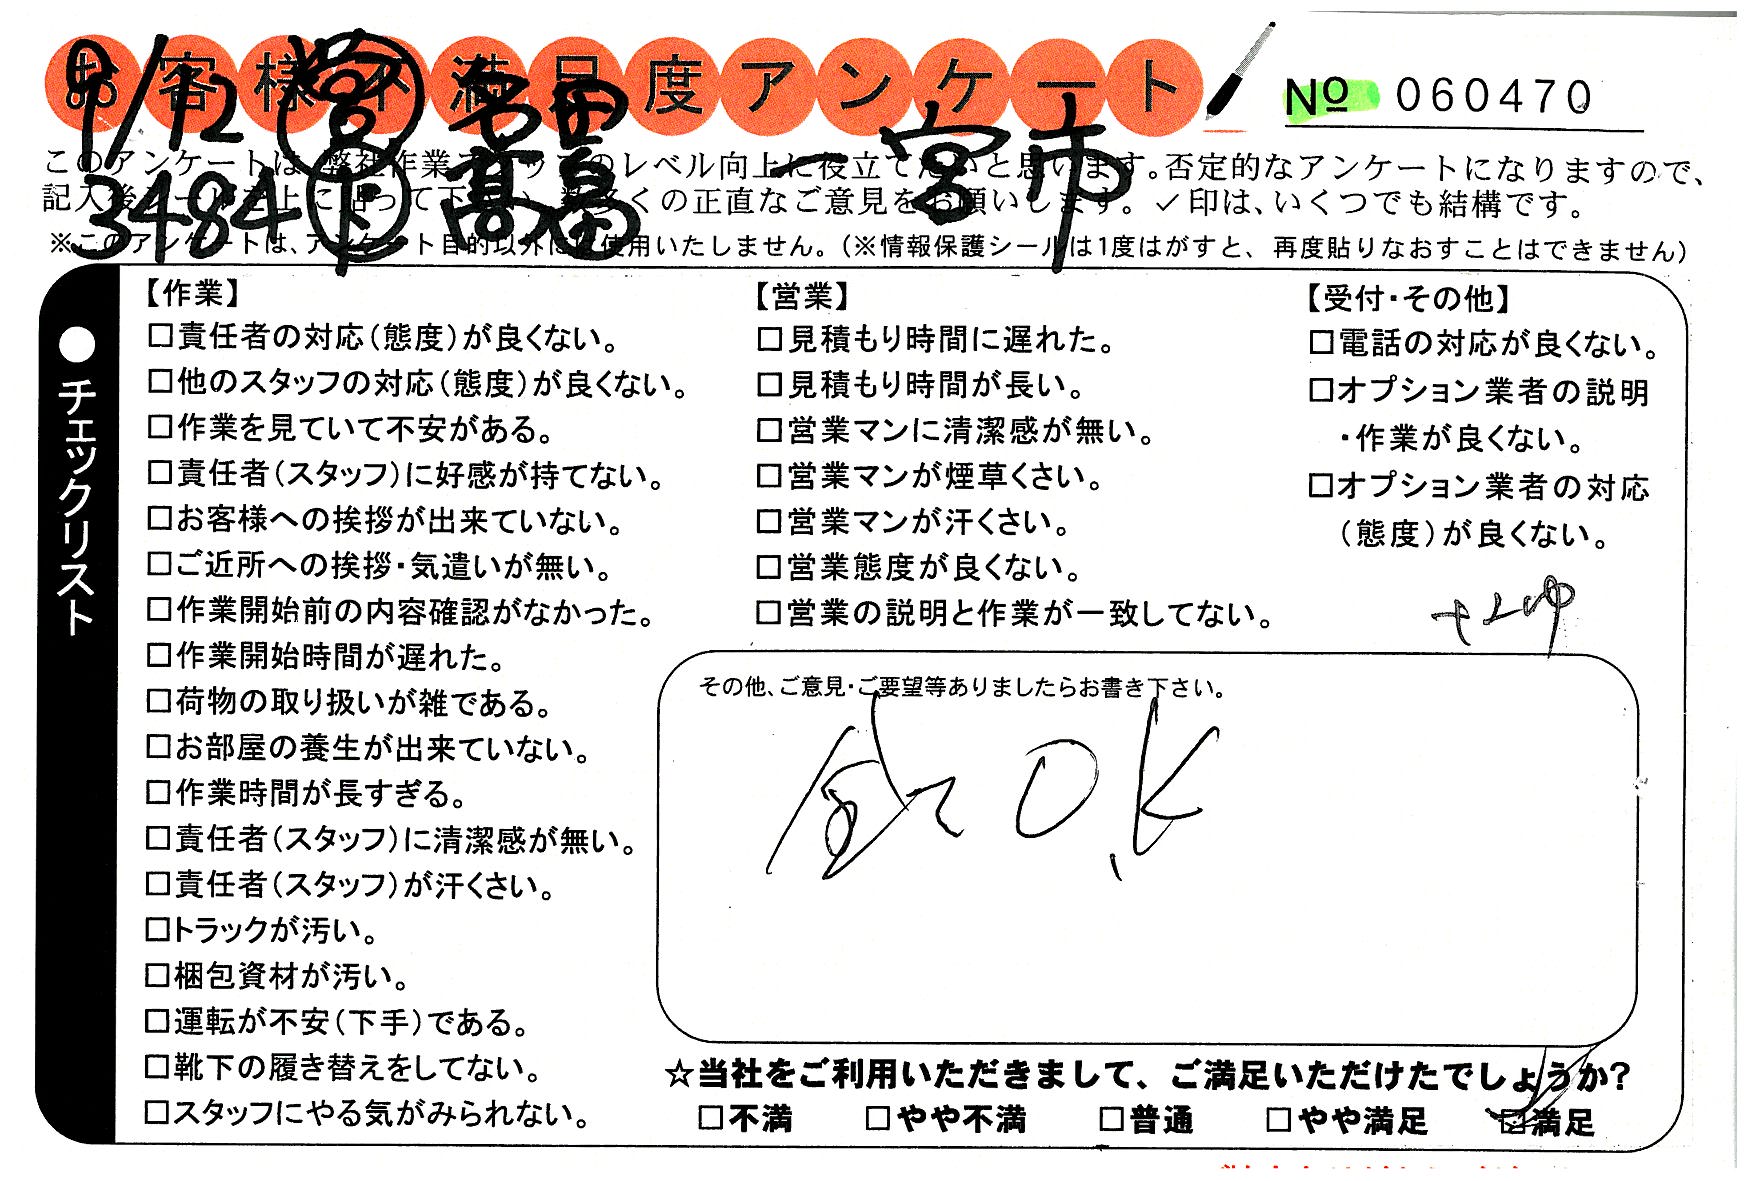 お客様不満足度アンケート
№ 060470
9/12 宮 一宮市
3484 下 髙畠
このアンケートは、弊社作業スタッフのレベル向上に役立てたいと思います。否定的なアンケートになりますので、
記入後シールを上に貼って下さい、数多くの正直なご意見をお願いします。✓印は、いくつでも結構です。
※このアンケートは、アンケート目的以外には使用いたしません。(※情報保護シールは1度はがすと、再度貼りなおすことはできません)
●チェックリスト
【作業】
□責任者の対応(態度)が良くない。
□他のスタッフの対応(態度)が良くない。
□作業を見ていて不安がある。
□責任者(スタッフ)に好感が持てない。
□お客様への挨拶が出来ていない。
□ご近所への挨拶・気遣いが無い。
□作業開始前の内容確認がなかった。
□作業開始時間が遅れた。
□荷物の取り扱いが雑である。
□お部屋の養生が出来ていない。
□作業時間が長すぎる。
□責任者(スタッフ)に清潔感が無い。
□責任者(スタッフ)が汗くさい。
□トラックが汚い。
□梱包資材が汚い。
□運転が不安(下手)である。
□靴下の履き替えをしてない。
□スタッフにやる気がみられない。
【営業】
□見積もり時間に遅れた。
□見積もり時間が長い。
□営業マンに清潔感が無い。
□営業マンが煙草くさい。
□営業マンが汗くさい。
□営業態度が良くない。
□営業の説明と作業が一致してない。
【受付・その他】
□電話の対応が良くない。
□オプション業者の説明
・作業が良くない。
□オプション業者の対応
(態度)が良くない。
その他、ご意見・ご要望等ありましたらお書き下さい。
全て O.K
☆当社をご利用いただきまして、ご満足いただけたでしょうか?
□不満 □やや不満 □普通 □やや満足 ☑満足